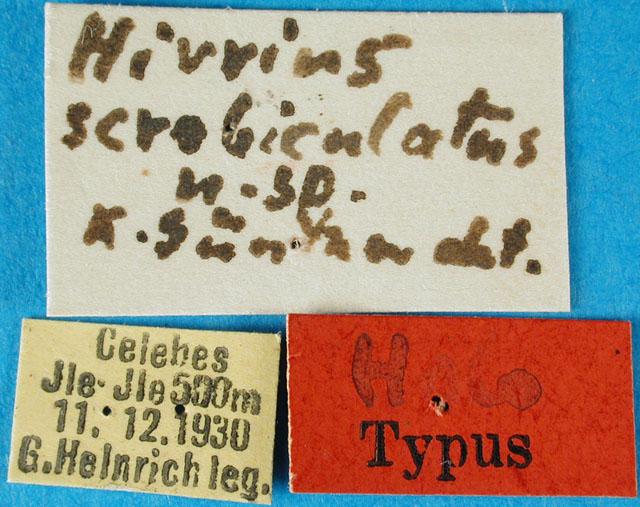 Hirrius
scrobiculatus
n. sp.
K. Günther det.
Celebes
Jle-Jle 500m
11. 12. 1930
G. Heinrich leg.
Holo
Typus